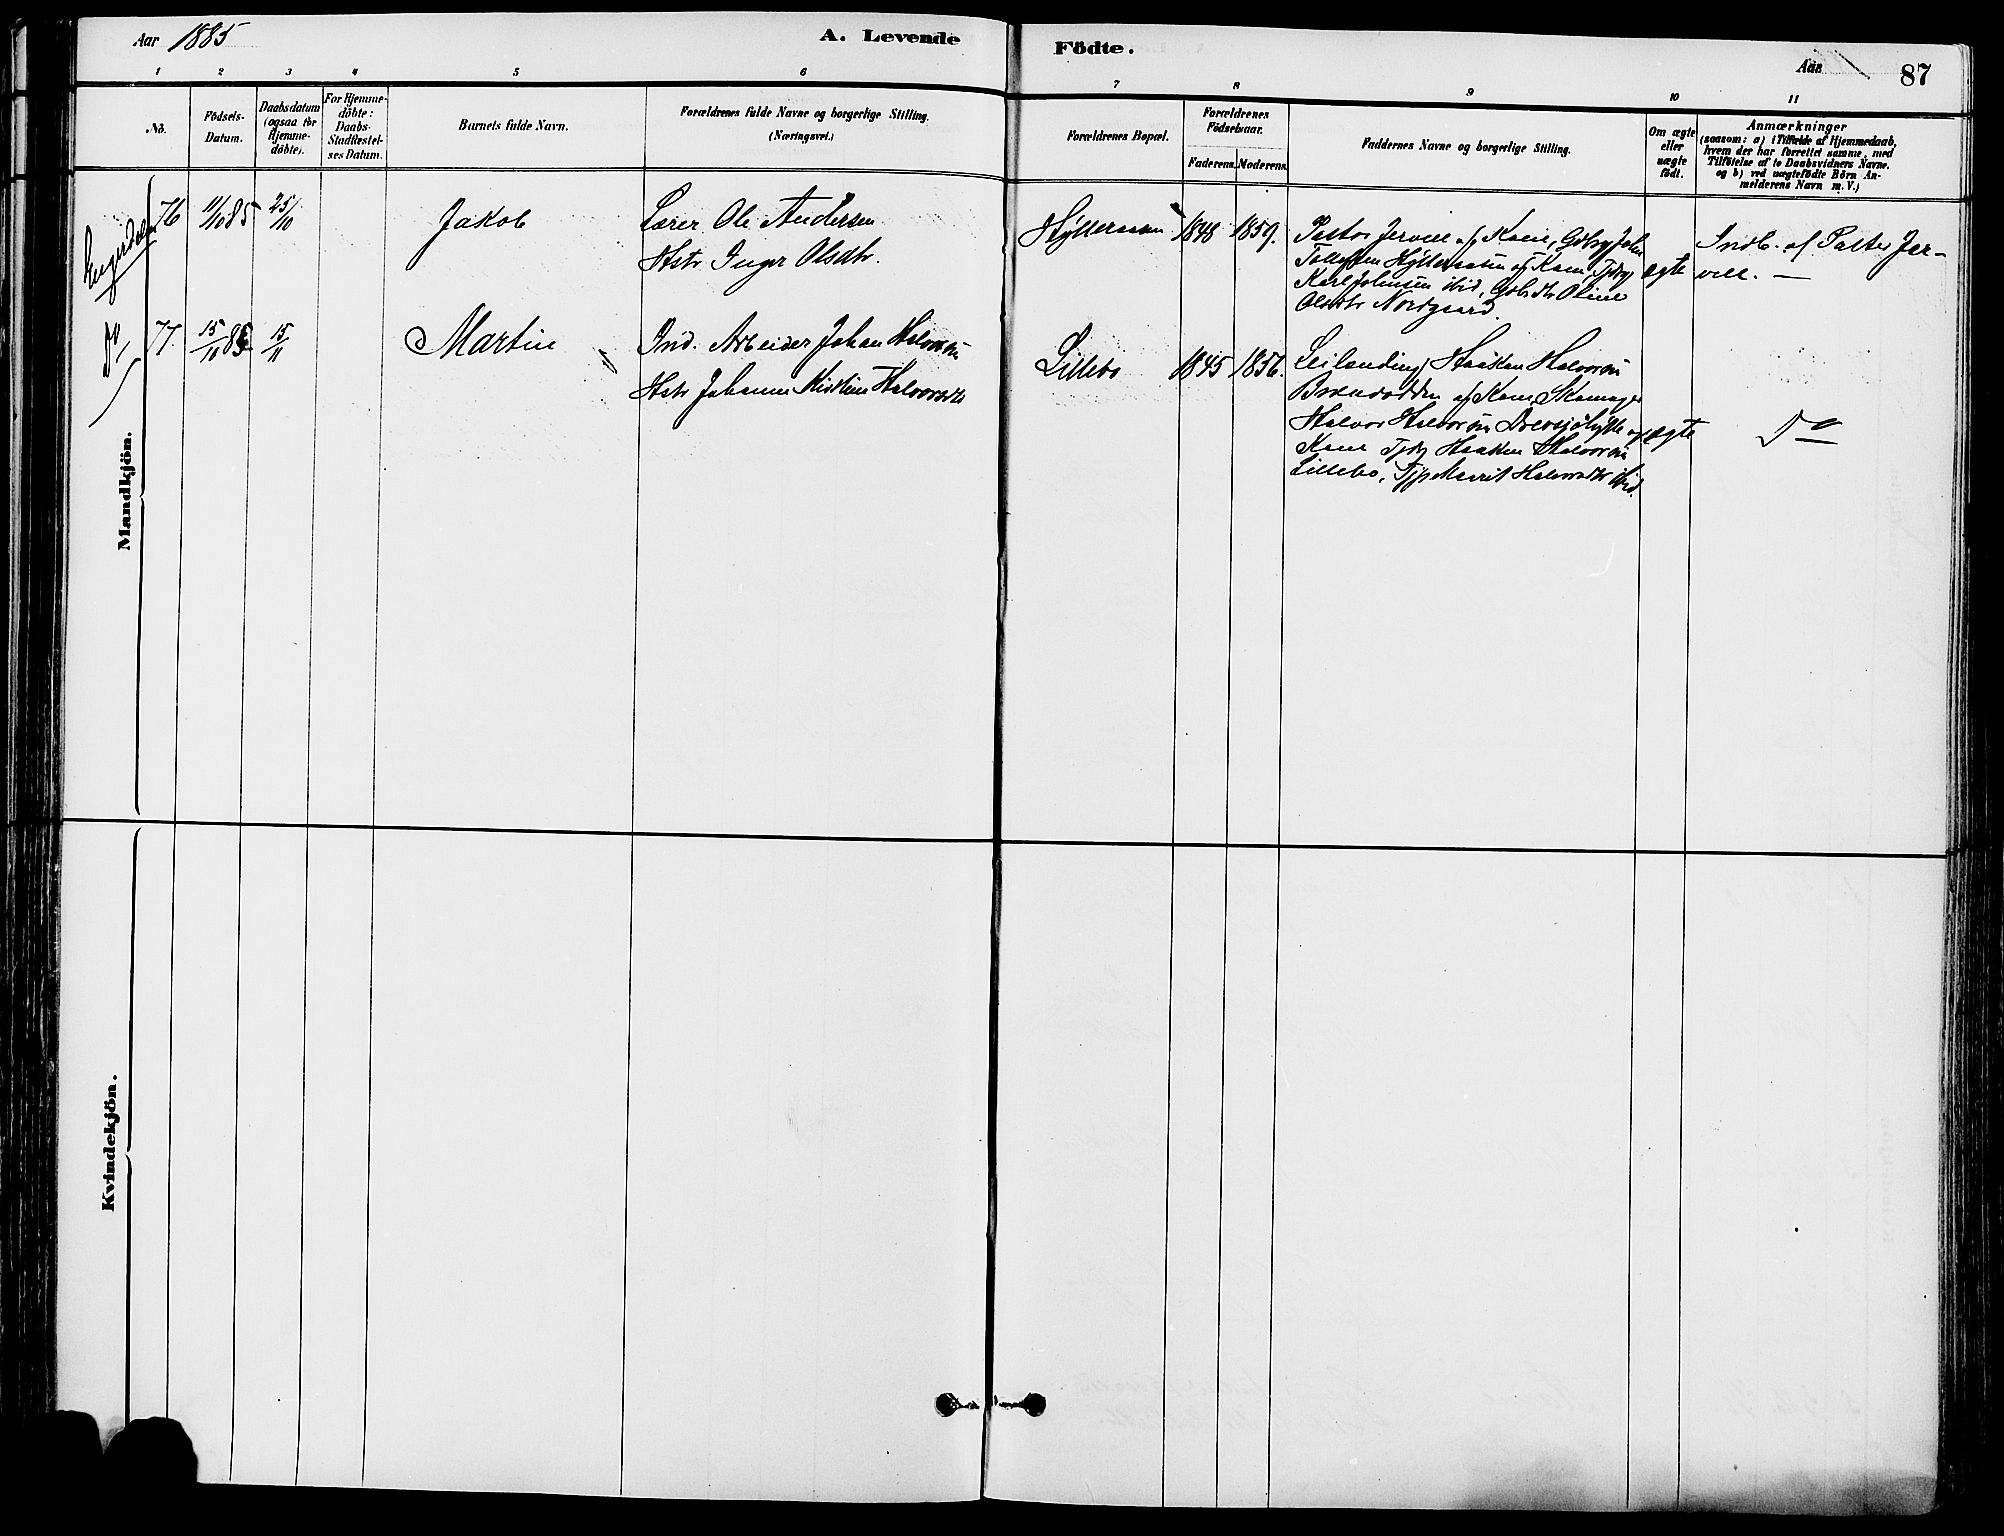 Aar 1885
A. Levende
Födte.
Aar
87
1 2 3 4 5 6 7 8 9 10 11
No.
Födsels-
Datum.
Daabsdatum
(ogsaa for
Hjemme-
döbte).
For Hjemme-
döbte:
Daabs-
Stadfæstel-
ses Datum.
Barnets fulde Navn.
Forældrenes fulde Navne og borgerlige Stilling.
(Næringsvei.)
Forældrenes Bopæl.
Forældrenes
Födselsaar.
Faderens. Moderens.
Faddernes Navne og borgerlige Stilling.
Om ægte
eller
uægte
födt.
Anmærkninger
(saasom: a) i Tilfælde af Hjemmedaab,
hvem der har forrettet samme, med
Tilföielse af to Daabsvidners Navne,
og b) ved uægtefödte Börn An-
melderens Navn m. V.)
Engerdalen
76
11/10 85
25/10
Jakob
Lærer Ole Andersen
Hstr Inger Olsdtr.
Hylleraasen
1848
1859.
Pastor Jervell af Kone, Gdbrg John
Tollefsen Hylleraasen af Kone Tjdrg
Karl Johnsen ibid, Gdbdtr Oline
Olsdtr Nordgaard.
ægte
Indb. af Pastor Jer-
vell. —
Do
77.
15/10 85
15/11
Martin
Ind. Arbeider Johan Halvorsen
Hstr Johanne Kristine Halvorsdtr
Lillebo
1845
1856.
Leilending Haaken Halvorsen
af Kone
Halvor Halvorsen Drevsjöhytte af
Kone Tjdrg Haaken Halvorsen
Lillebo, Tjp Marit Halvorsdtr ibid.
ægte
Do
Mandkjön.
Kvindekjön.